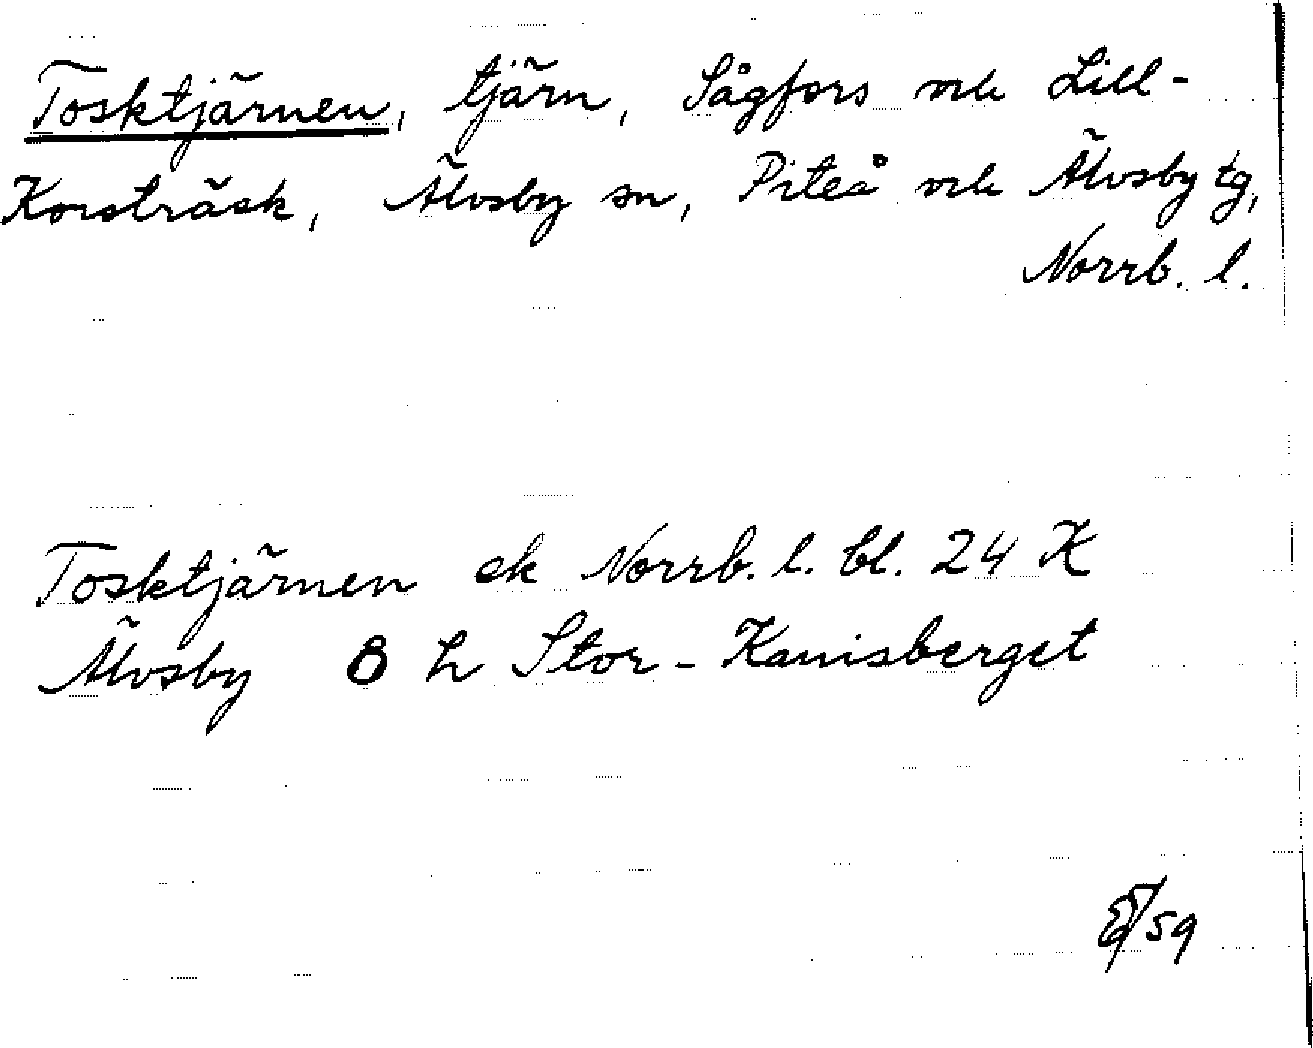 Tosktjärnen, tjärn, Sågfors och Lill-
Korsträsk, Älvsby sn, Piteå och Älvsby tg,
Norrb. l.
Tosktjärnen ek Norrb. l. bl. 24 K
Älvsby 8 h Stor-Kanisberget
59